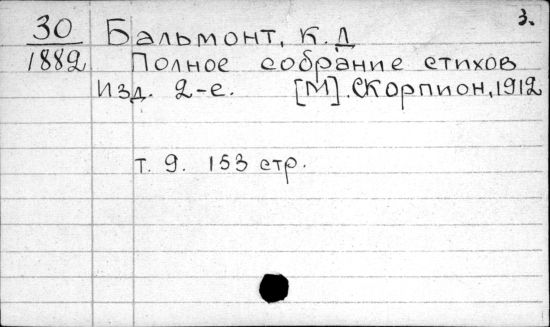 3.
30 Бальмонт, К. Д
1882 Полное собрание стихов
Изд. 2-е. [М]. Скорпион, 1912
т. 9. 153 стр.